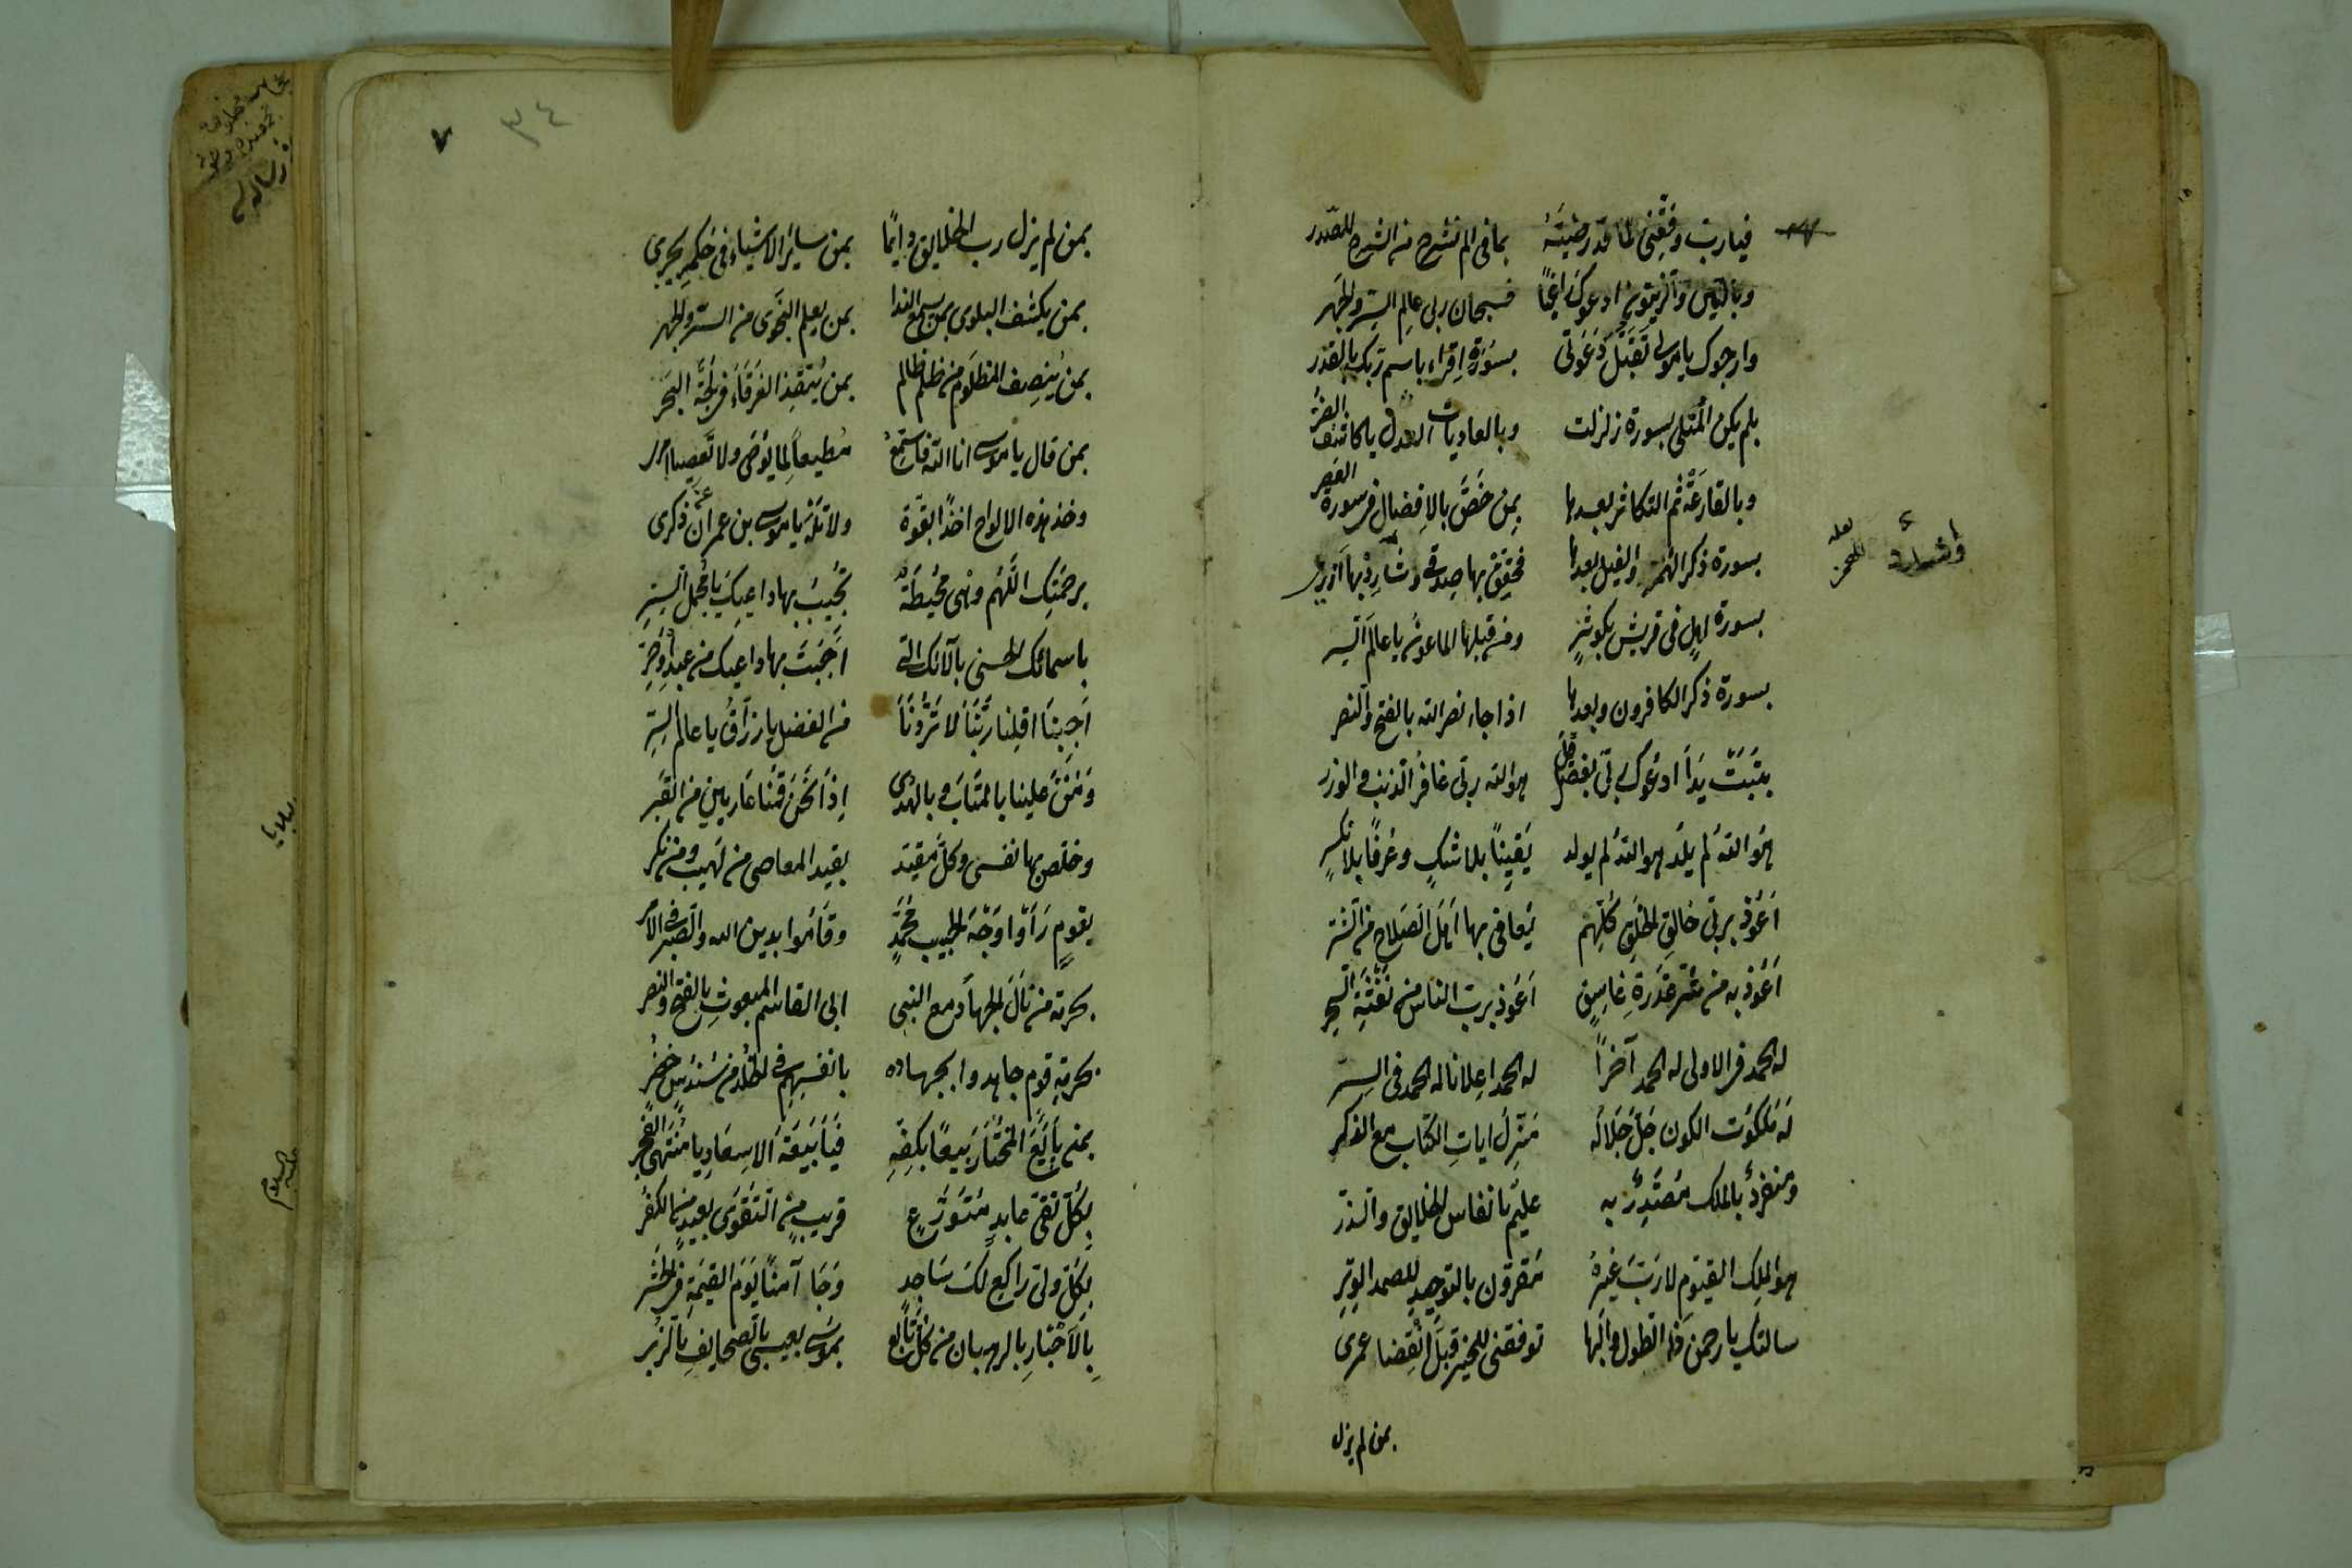 فيارب وفقني لما قد رضيته بما في الم نشرح من الشرح للصدر
وبالتين والزيتون ادعوك راغبًا فسبحان ربي عالم السر والجهر
وارجوك يا مولى تقبل دعوتي بسورة اقراء باسم ربك بالقدر
بلم يكن المتلى بسورة زلزلت وبالعاديات العدل يا كاشف الضر
وبالقارعة ثم التكاثر بعدها بمن خص بالافضال في سورة العصر
بسورة ذكر الهمز والفيل بعدها فحقق بها صدقي وشارد بها ازري
بسورة ايل في قريش بكوثر ومن قبلها الماعون يا عالم السر
بسورة ذكر الكافرون وبعدها اذا جاء نصر الله بالفتح والنصر
بتبت يدا ادعوك ربي بفضل قل هو الله ربي غافر الذنب والوزر
هو الله لم يلد هو الله لم يولد يقينًا بلا شك وعرفًا بلا نكر
اعوذ بربي خالق الخلق كلهم يعافي بها اهل الصلاح من الشر
اعوذ به من شر غدرة غاسق اعوذ برب الناس من نفثة السحر
له الحمد في الاولى له الحمد آخرًا له الحمد اعلانا له الحمد في السر
له ملكوت الكون جل جلاله منزل ايات الكتاب مع الذكر
ومنفرد بالملك مقتدر به عليم بانفاس الخلايق والذر
هو الملك القيوم لا رب غيره مقرون بالتوحيد للصمد الوتر
سالتك يا رحمن ذا الطول والبها توفقني للخير قبل انقضا عمري
بمن لم يزل
واشدد
لعله
للهمز
٧
٣٤
بمن لم يزل رب الخلايق دايمًا بمن ساير الاشياء في حكمه يجري
بمن يكشف البلوى بمن يسمع الندا بمن يعلم النجوى من السر والجهر
بمن ينصف المظلوم من ظلم ظالم بمن ينقذ الغرقاء في لجة البحر
بمن قال يا موسى انا الله فاستمع مطيعًا لما يوحى ولا تعصيا امر
وخذ هذه الالواح اخذًا بقوة ولا تله يا موسى بن عمران عن ذكري
برحمتك اللهم وهي محيطة تجيب بها داعيك يا مجمل الستر
باسمائك الحسنى بآلائك التي اجبت بها داعيك من عبد او حر
اجبنا اقلنا ربنا لا تردنا من الفضل يا رزاق يا عالم السر
ومن علينا بالمتاب وبالهدى اذا نحن قمنا عاريين من القبر
وخلص بها نفسي وكل مقيد بقيد المعاصي من لهيب ومن نكر
بقوم رأوا وجه الحبيب محمد وقاموا بدين الله والصبر في الامر
بحرمة من نال الجهاد مع النبي ابي القاسم المبعوث بالفتح والنصر
بحرمة قوم جاهدوا بجهاده بانفسهم في الخلد من سندس خضر
بمن بايع المختار بيعًا بكفه فيا بيعة الاسعاد يا منتهى الفخر
بكل تقي عابد متورع قريب من التقوى بعيد من الكفر
بكل ولي راكع لك ساجد وجا آمنًا يوم القيمة في الحشر
بالاحبار بالرهبان من كل تابع بموسى بعيسى بالصحايف بالزبر
رساله لر
عليه السلام